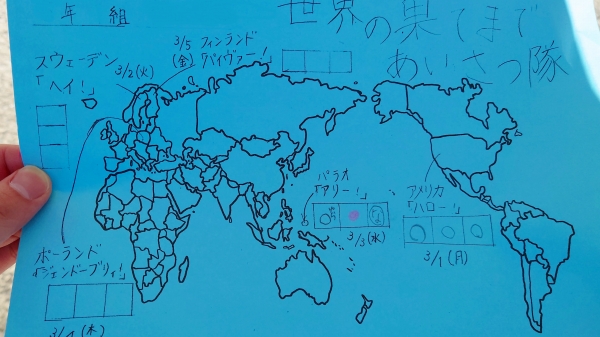 年 組
世界の果てまで
あいさつ隊
スウェーデン
「ヘイ!」
3/2(火)
3/5
(金)
フィンランド
パラオ
「アリー!」
3/3(水)
アメリカ
「ハロー!」
3/1(月)
ポーランド
「ジェンドーブリィ!」
3/4(木)